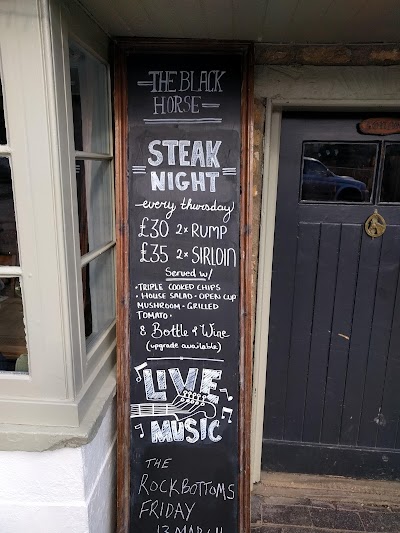 THE BLACK
HORSE
STEAK
NIGHT
every thursday
£30 2x RUMP
£35 2x SIRLOIN
Served w/
·TRIPLE COOKED CHIPS
· HOUSE SALAD · OPEN CUP
MUSHROOM · GRILLED
TOMATO ·
& Bottle of Wine
(upgrade available)
LIVE
MUSIC
THE
ROCKBOTTOMS
FRIDAY
13 MARCH